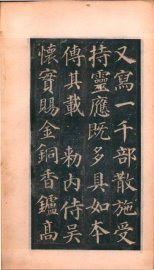 又寫一千部散施受
持靈應既多具如本
傳其載　勑內侍吳
懷實賜金銅香鑪高